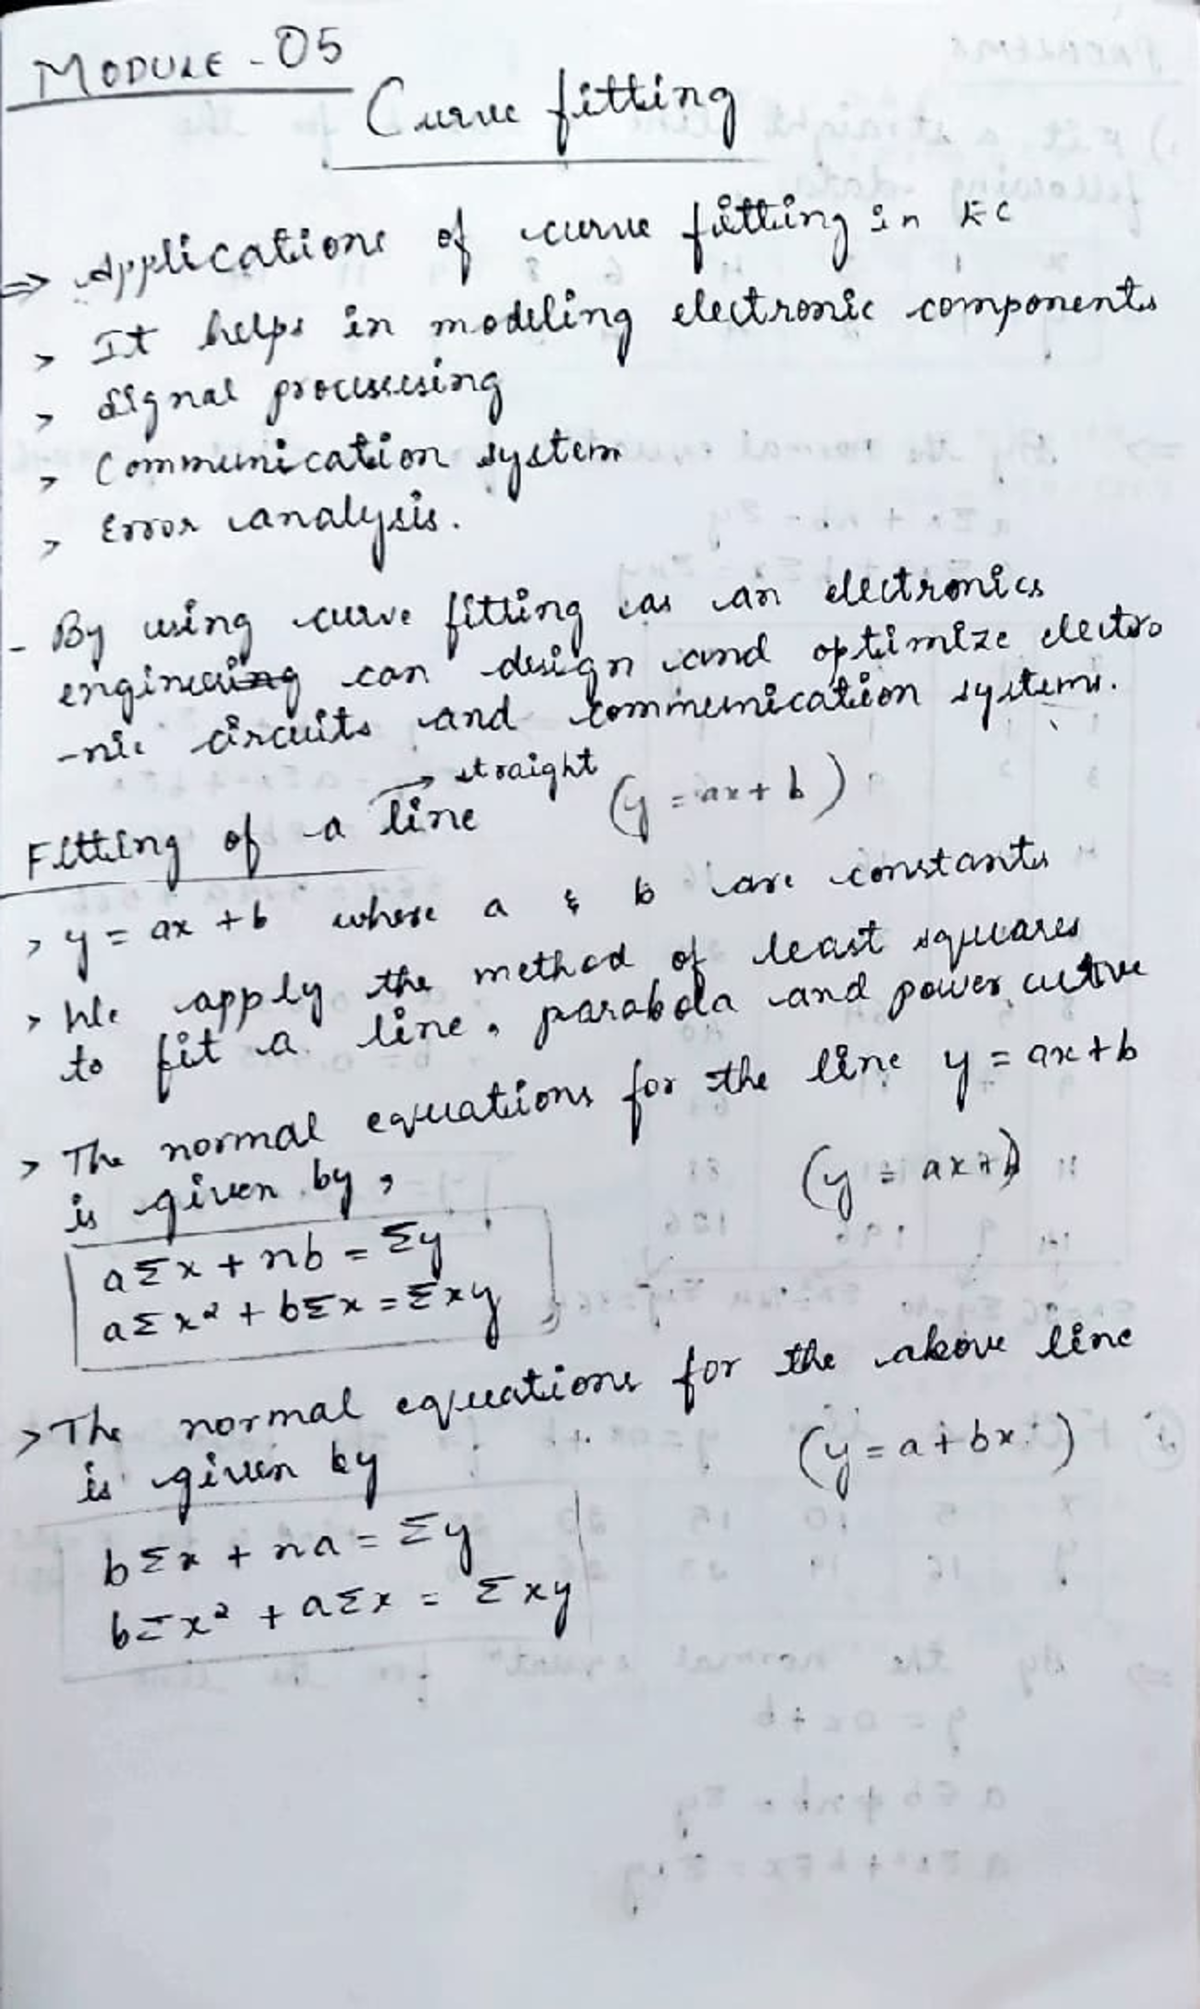 MODULE - 05
Curve fitting
⇒ Applications of curve fitting in EC
> It helps in modeling electronic components
> Signal processing
> Communication system
> Error analysis.
- By using curve fitting as an electronics
engineering can design and optimize electro
-nic circuits and communication systems.
→ straight
Fitting of a line (y = ax + b)
> y = ax + b where a & b are constants
> We apply the method of least squares
to fit a line, parabola and power curve
> The normal equations for the line y = ax + b
is given by, (y = ax + b)
aΣx + nb = Σy
aΣx² + bΣx = Σxy
> The normal equations for the above line
is given by (y = a + bx)
bΣx + na = Σy
bΣx² + aΣx = Σxy